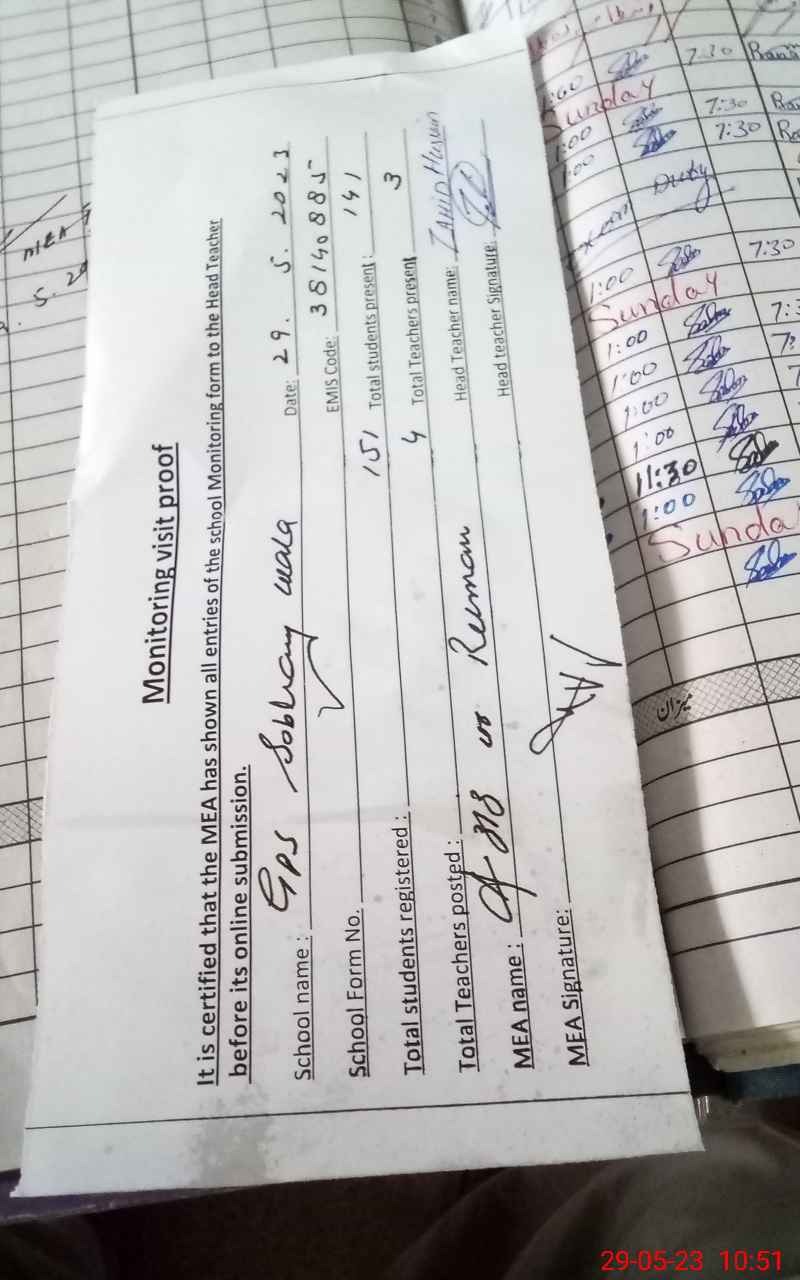 Monitoring visit proof
It is certified that the MEA has shown all entries of the school Monitoring form to the Head Teacher
before its online submission.
School name : GPS Sobhany wala Date: 29. 5. 2023
School Form No. EMIS Code: 38140885
Total students registered : 151 Total students present : 141
Total Teachers posted : 4 Total Teachers present 3
MEA name : Rehman Head Teacher name: Zahid Hussain
MEA Signature: Head teacher Signature:
MEA
5. 20
7:30
1:00
Sunday
1:00 7:30
1:00 7:30
Duty
1:00 7:30
Sunday
1:00 7:3
1:00 7:
1:00 7
1:00
11:30
1:00
Sunda
میزان
29-05-23 10:51